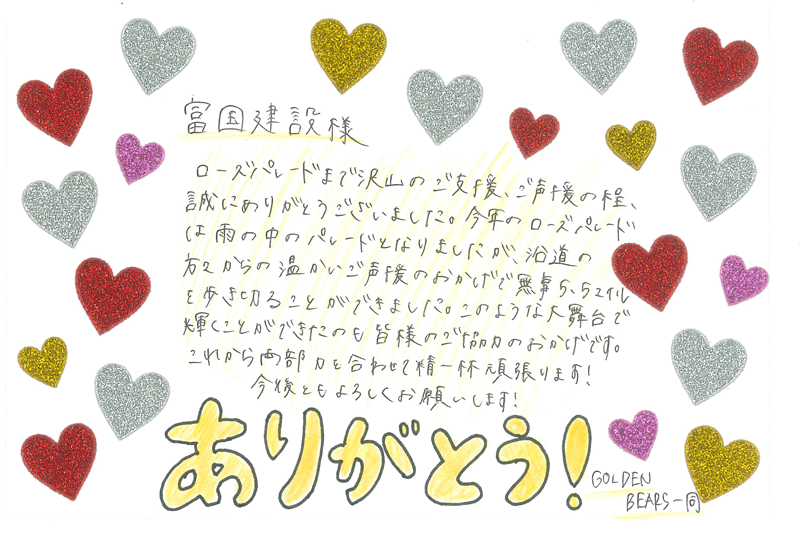 富国建設様
ローズパレードまで沢山のご支援、ご声援の程、
誠にありがとうございました。今年のローズパレード
は雨の中のパレードとなりましたが、沿道の
方々からの温かいご声援のおかげで無事5.5マイル
を歩き切ることができました。このような大舞台で
輝くことができたのも皆様のご協力のおかげです。
これから両部力を合わせて精一杯頑張ります!
今後ともよろしくお願いします!
ありがとう!
GOLDEN
BEARS一同